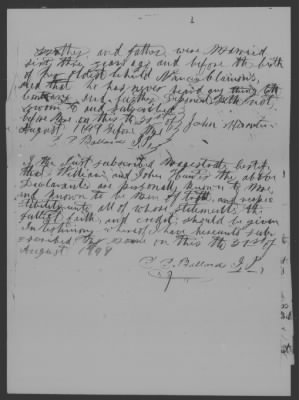 mother and father were married
sixt three years ago and before the birth
of her oldest child Nancy
and that he has never heard any thing to the
and further deponent saith not
sworn to and subscribed
before me on this the 31st of
August 1898 before me John
T. T. Ballard J.P.
I the first subscribed Magistrate certify
that William and John Hunter the above
Declarants are personally known to me
and known to be men of truth and
all of whose statements the
fullest faith and credit should be given
In testimony whereof I have hereunto sub-
scribed my name on this the 31st of
August 1898
T. T. Ballard J.P.